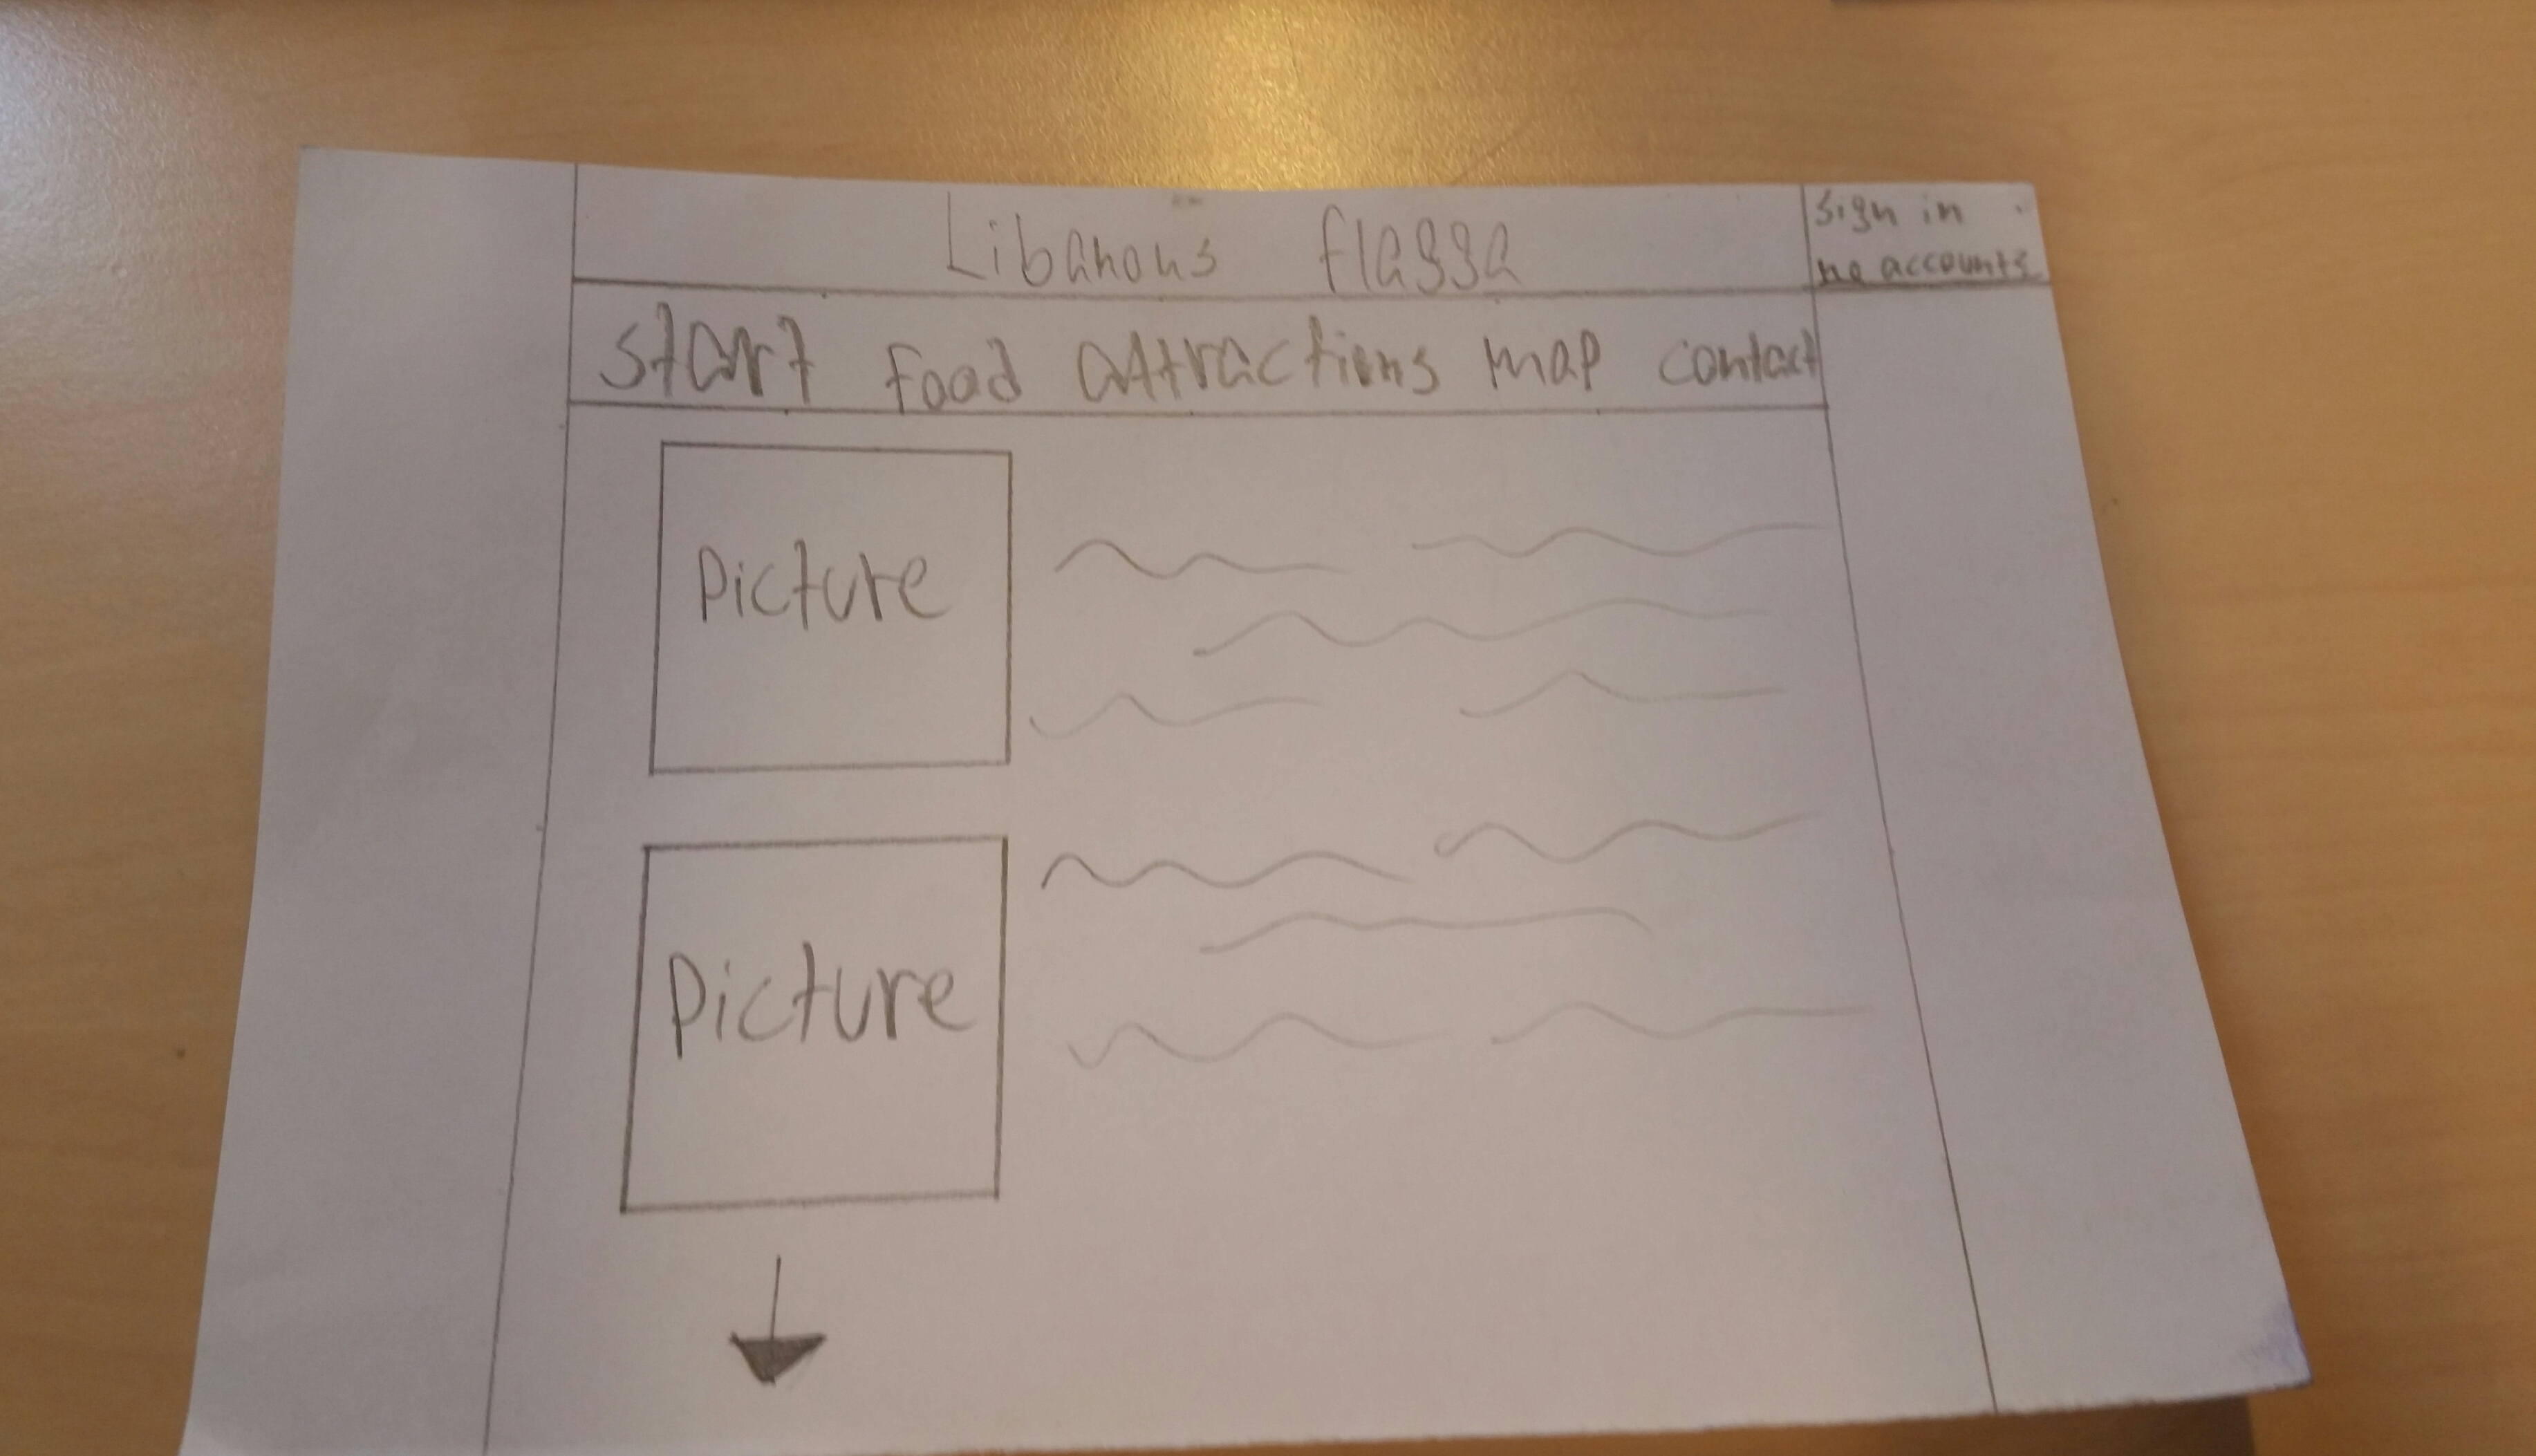 Libanons flagga
Sign in
accounts
Start Food attractions map contact
Picture
Picture